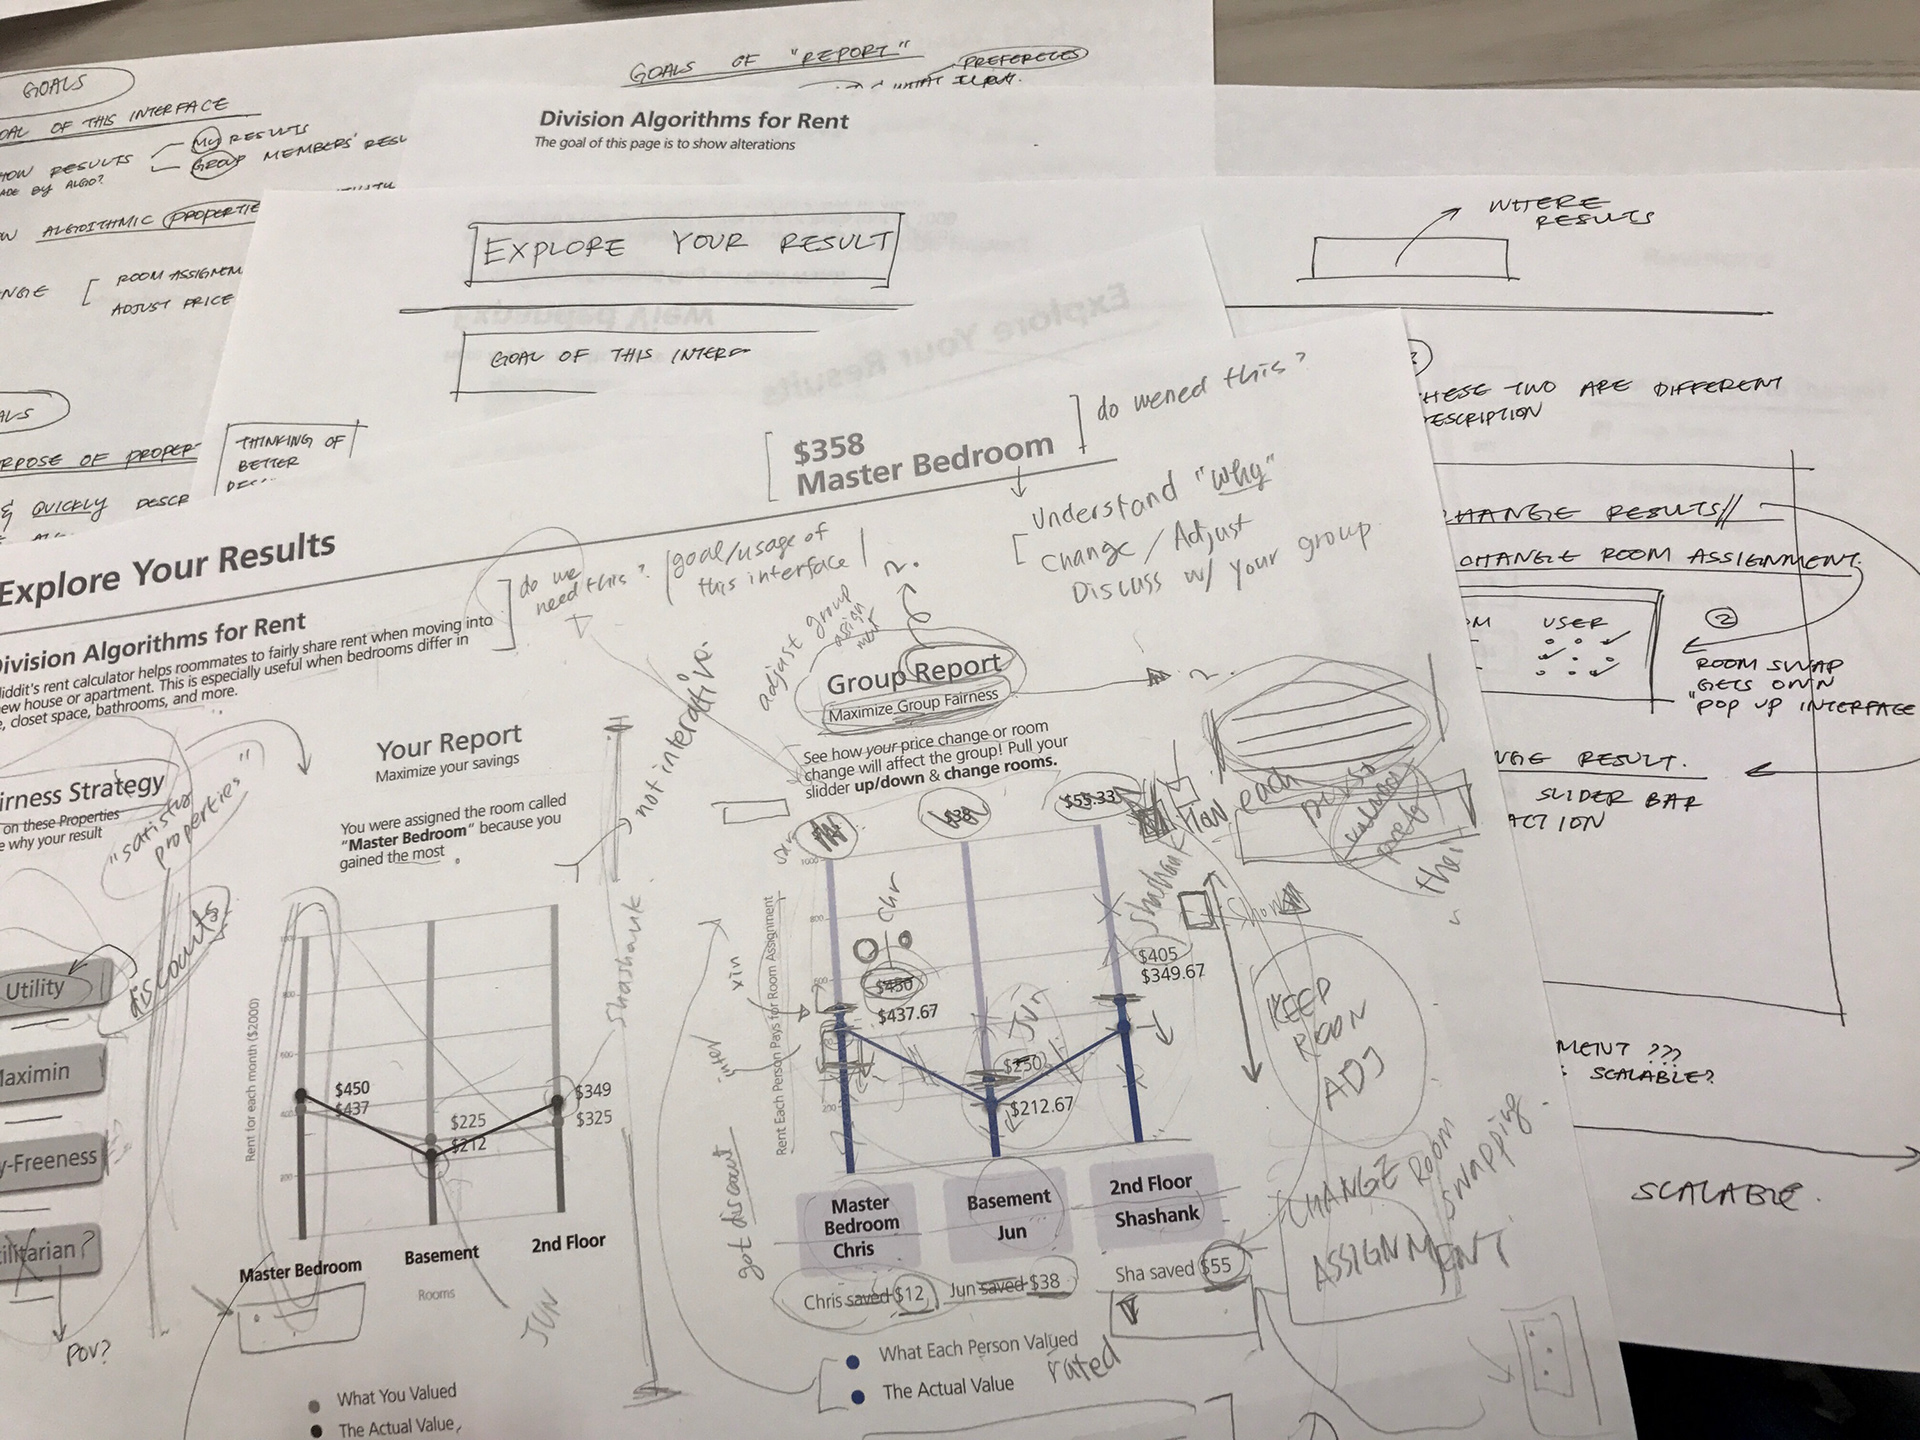 GOALS
GOALS OF "REPORT"
PREFERECES
OF THIS INTERFACE
MY RESULTS
GROUP MEMBERS'
RESULTS
BY ALGO?
ALGOITHMIC
ROOM ASSIGNM
ADJUST PRICE
Division Algorithms for Rent
The goal of this page is to show alterations
EXPLORE YOUR RESULT
GOAL OF THIS INTERF
WHERE
RESULTS
OF PROPER
QUICKLY DESCR
THINKING OF
BETTER
HESE TWO ARE DIFFERENT
ESCRIPTION
HANGE RESULTS//
CHANGE ROOM ASSIGNMENT.
USER
2
ROOM SWAP
GETS OWN
"POP UP INTERFACE
RESULT.
SLIDER BAR
ACTION
MENT ???
SCALABLE?
SCALABLE.
$358
Master Bedroom
do wened this?
Understand "why"
Change / Adjust
Discuss w/ your group
Explore Your Results
do we
need this?
goal/usage of
this interface
ivision Algorithms for Rent
liddit's rent calculator helps roommates to fairly share rent when moving into
ew house or apartment. This is especially useful when bedrooms differ in
e, closet space, bathrooms, and more.
irness Strategy
on these Properties
e why your result
"satisfy
properties"
discounts
Utility
Maximin
y-Freeness
ilitarian ?
POV?
Your Report
Maximize your savings
You were assigned the room called
"Master Bedroom" because you
gained the most
not interative.
Shashank
Rent for each month ($2000)
600
400
200
$450
$437
$225
$212
$349
$325
Master Bedroom
Basement
2nd Floor
Rooms
JUN
What You Valued
The Actual Value
adjust group
assign
ment
2.
Group Report
Maximize Group Fairness
2.
See how your price change or room
change will affect the group! Pull your
slider up/down & change rooms.
$38
$55.33
Rent Each Person Pays for Room Assignment
1000
800
200
Chr
$450
$437.67
Jun
$250
$212.67
Shashank
$405
$349.67
each
their
KEEP
ROON
ADJ
CHANGE ROOM
Swapping
ASSIGNMENT
got discount
Master
Bedroom
Chris
Basement
Jun
2nd Floor
Shashank
Chris saved $12
Jun saved $38
Sha saved $55
What Each Person Valued
rated
The Actual Value